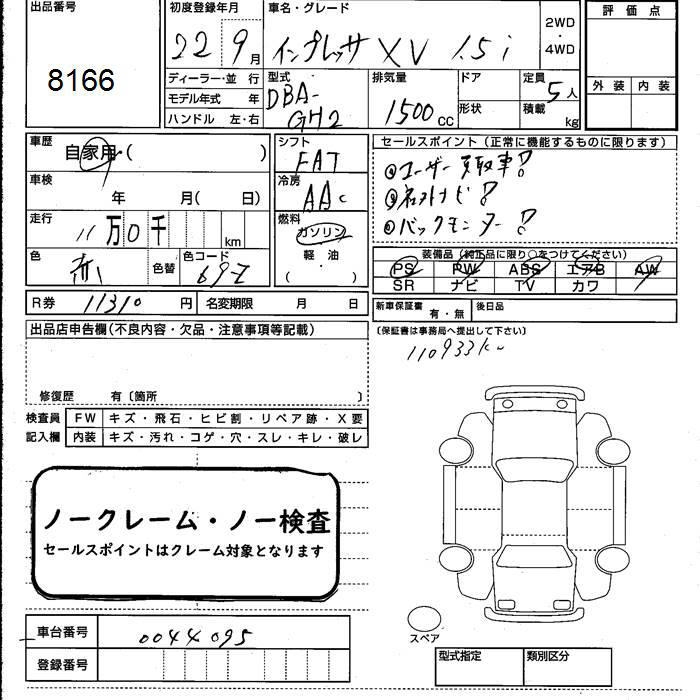 出品番号
8166
初度登録年月
22 9月
車名・グレード
インプレッサ XV 1.5i
2WD
・
4WD
評価点
外装 内装
ディーラー・並 行
モデル年式 年
ハンドル 左・右
型式
DBA-
GH2
排気量
1500cc
ドア
形状
定員
5人
積載
kg
車歴
自家用・( )
車検
年 月( 日)
走行
11万0千 km
色
赤 色替
色コード
69Z
R券 11310 円 名変期限 月 日
シフト
FAT
冷房
AAC
燃料
ガソリン
軽・油
( )
セールスポイント(正常に機能するものに限ります)
ユーザー買取車!
ナビ!
バックモニター!
装備品(純正品に限り○をつけてください)
PS PW ABS エアB AW
SR ナビ TV カワ
新車保証書
有・無
後日品
(保証書は事務局へ提出して下さい)
110933km
出品店申告欄(不良内容・欠品・注意事項等記載)
修復歴 有〔箇所 〕
検査員
記入欄
FW キズ・飛石・ヒビ割・リペア跡・X要
内装 キズ・汚れ・コゲ・穴・スレ・キレ・破レ
ノークレーム・ノー検査
セールスポイントはクレーム対象となります
車台番号 0044095
登録番号
スペア
型式指定 類別区分